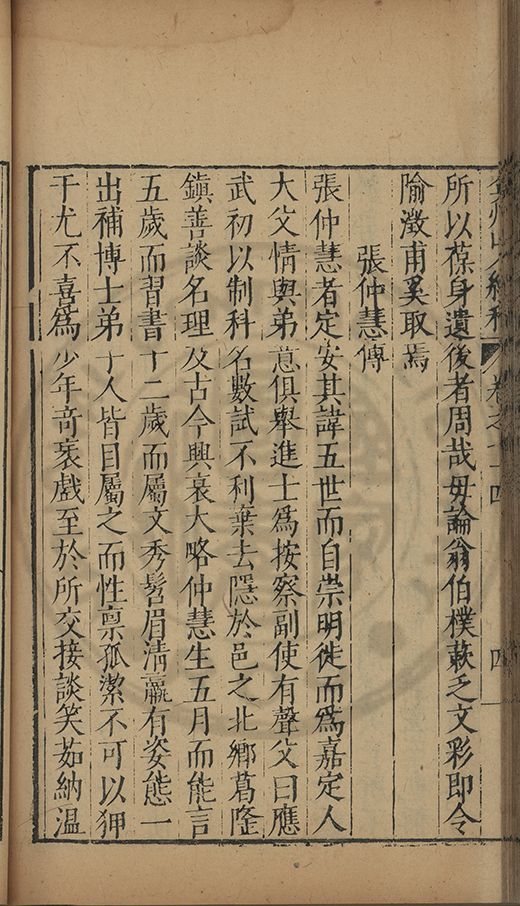 弇州山人續稿 卷之七十四 四
所以葆身遺後者周哉毋論翁伯樸蔌乏文彩即令
隃澂甫奚取焉
張仲慧傳
張仲慧者定安其諱五世而自崇明徙而為嘉定人
大父情與弟意俱舉進士為按察副使有聲父曰應
武初以制科名數試不利棄去隱於邑之北鄉葛隆
鎮善談名理及古今興衰大略仲慧生五月而能言
五歲而習書十二歲而屬文秀髫眉清羸有姿態一
出補博士弟子人皆目屬之而性禀孤潔不可以狎
于尤不喜為少年奇衺戲至於所交接談笑茹納溫